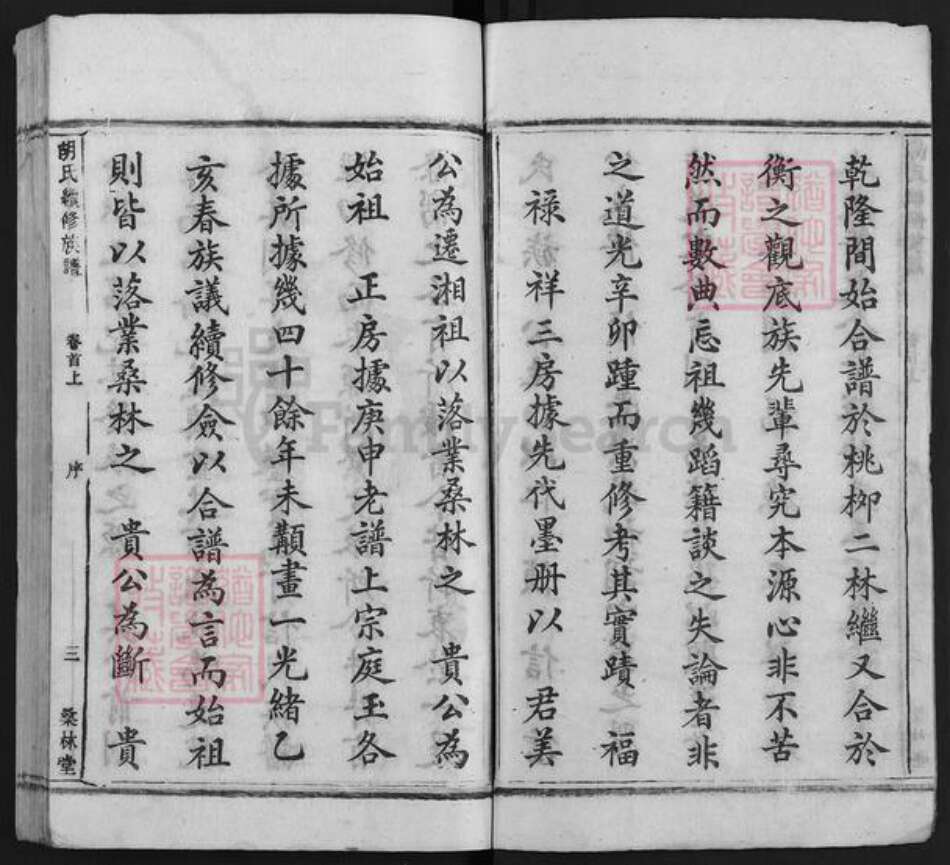 乾隆間始合譜於桃柳二林繼又合於
衡之觀底族先輩尋究本源心非不苦
然而數典忘祖幾蹈籍談之失論者非
之道光辛卯踵而重修考其實蹟　福
祿　祥三房據先代墨册以　君美
公為遷湘祖以落業桑林之　貴公為
始祖　正房據庚申老譜上宗庭玉各
據所據幾四十餘年未顜畫一光緒乙
亥春族議續修僉以合譜為言而始祖
則皆以落業桑林之　貴公為斷　貴
胡氏續修族譜　卷首上　序　三　桑林堂
FamilySearch